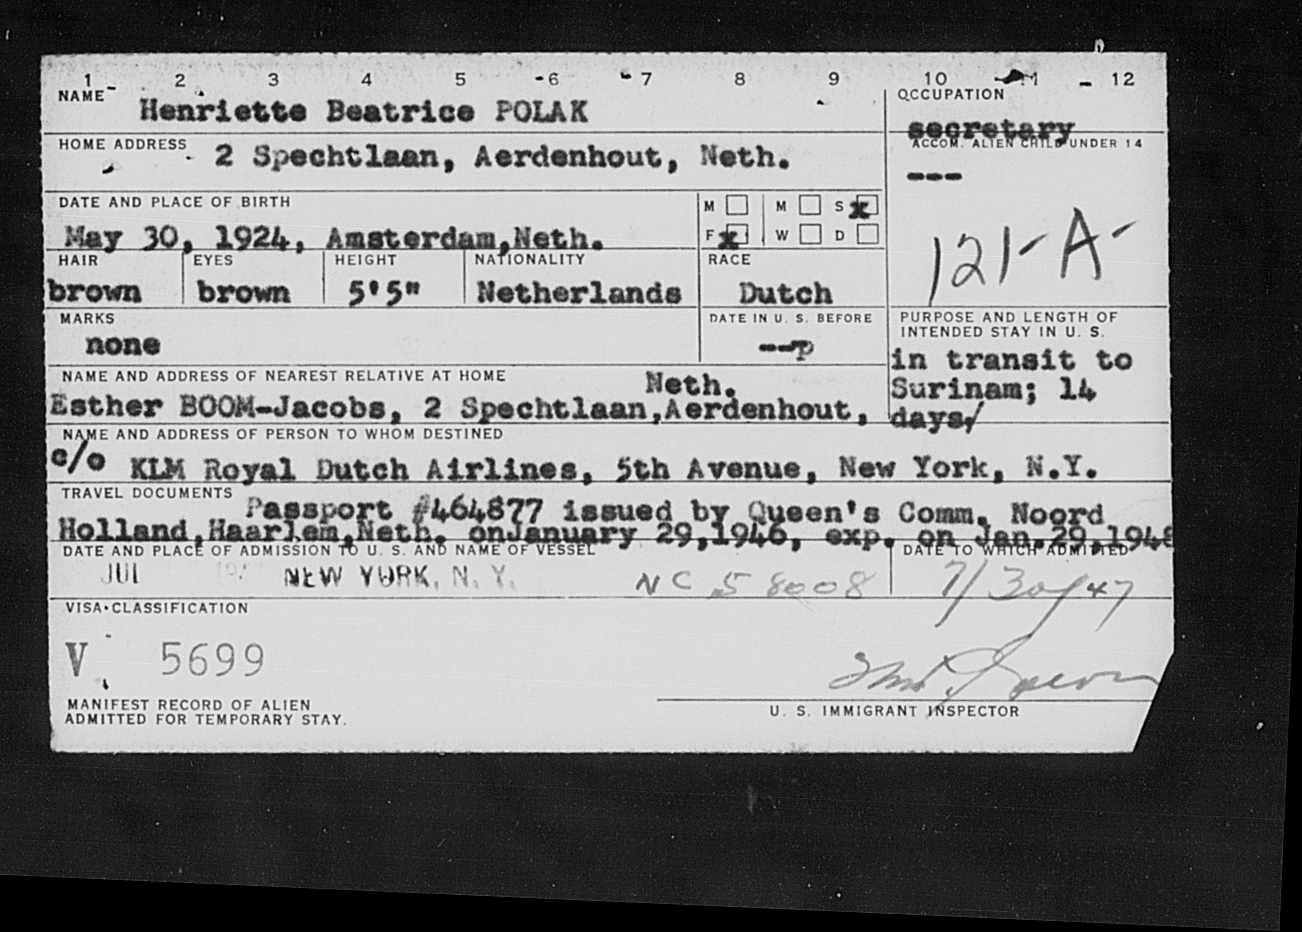 1 2 3 4 5 6 7 8 9 10 11 12
NAME
Henriette Beatrice POLAK
OCCUPATION
secretary
HOME ADDRESS
2 Spechtlaan, Aerdenhout, Neth.
ACCOM. ALIEN CHILD UNDER 14
---
DATE AND PLACE OF BIRTH
May 30, 1924, Amsterdam,Neth.
M M S x
F x W D
121-A-
HAIR EYES HEIGHT NATIONALITY RACE
brown brown 5'5" Netherlands Dutch
MARKS
none
DATE IN U. S. BEFORE
PURPOSE AND LENGTH OF
INTENDED STAY IN U. S.
in transit to
Surinam; 14
days/
NAME AND ADDRESS OF NEAREST RELATIVE AT HOME
Neth.
Esther BOOM-Jacobs, 2 Spechtlaan,Aerdenhout,
NAME AND ADDRESS OF PERSON TO WHOM DESTINED
c/o KLM Royal Dutch Airlines, 5th Avenue, New York, N.Y.
TRAVEL DOCUMENTS
Passport #464877 issued by Queen's Comm. Noord
Holland,Haarlem,Neth. onJanuary 29,1946, exp. on Jan.29,1948
DATE AND PLACE OF ADMISSION TO U. S. AND NAME OF VESSEL
DATE TO WHICH ADMITTED
JUL NEW YORK, N. Y. NC 58008 7/30/47
VISA CLASSIFICATION
V 5699
MANIFEST RECORD OF ALIEN
ADMITTED FOR TEMPORARY STAY.
U. S. IMMIGRANT INSPECTOR